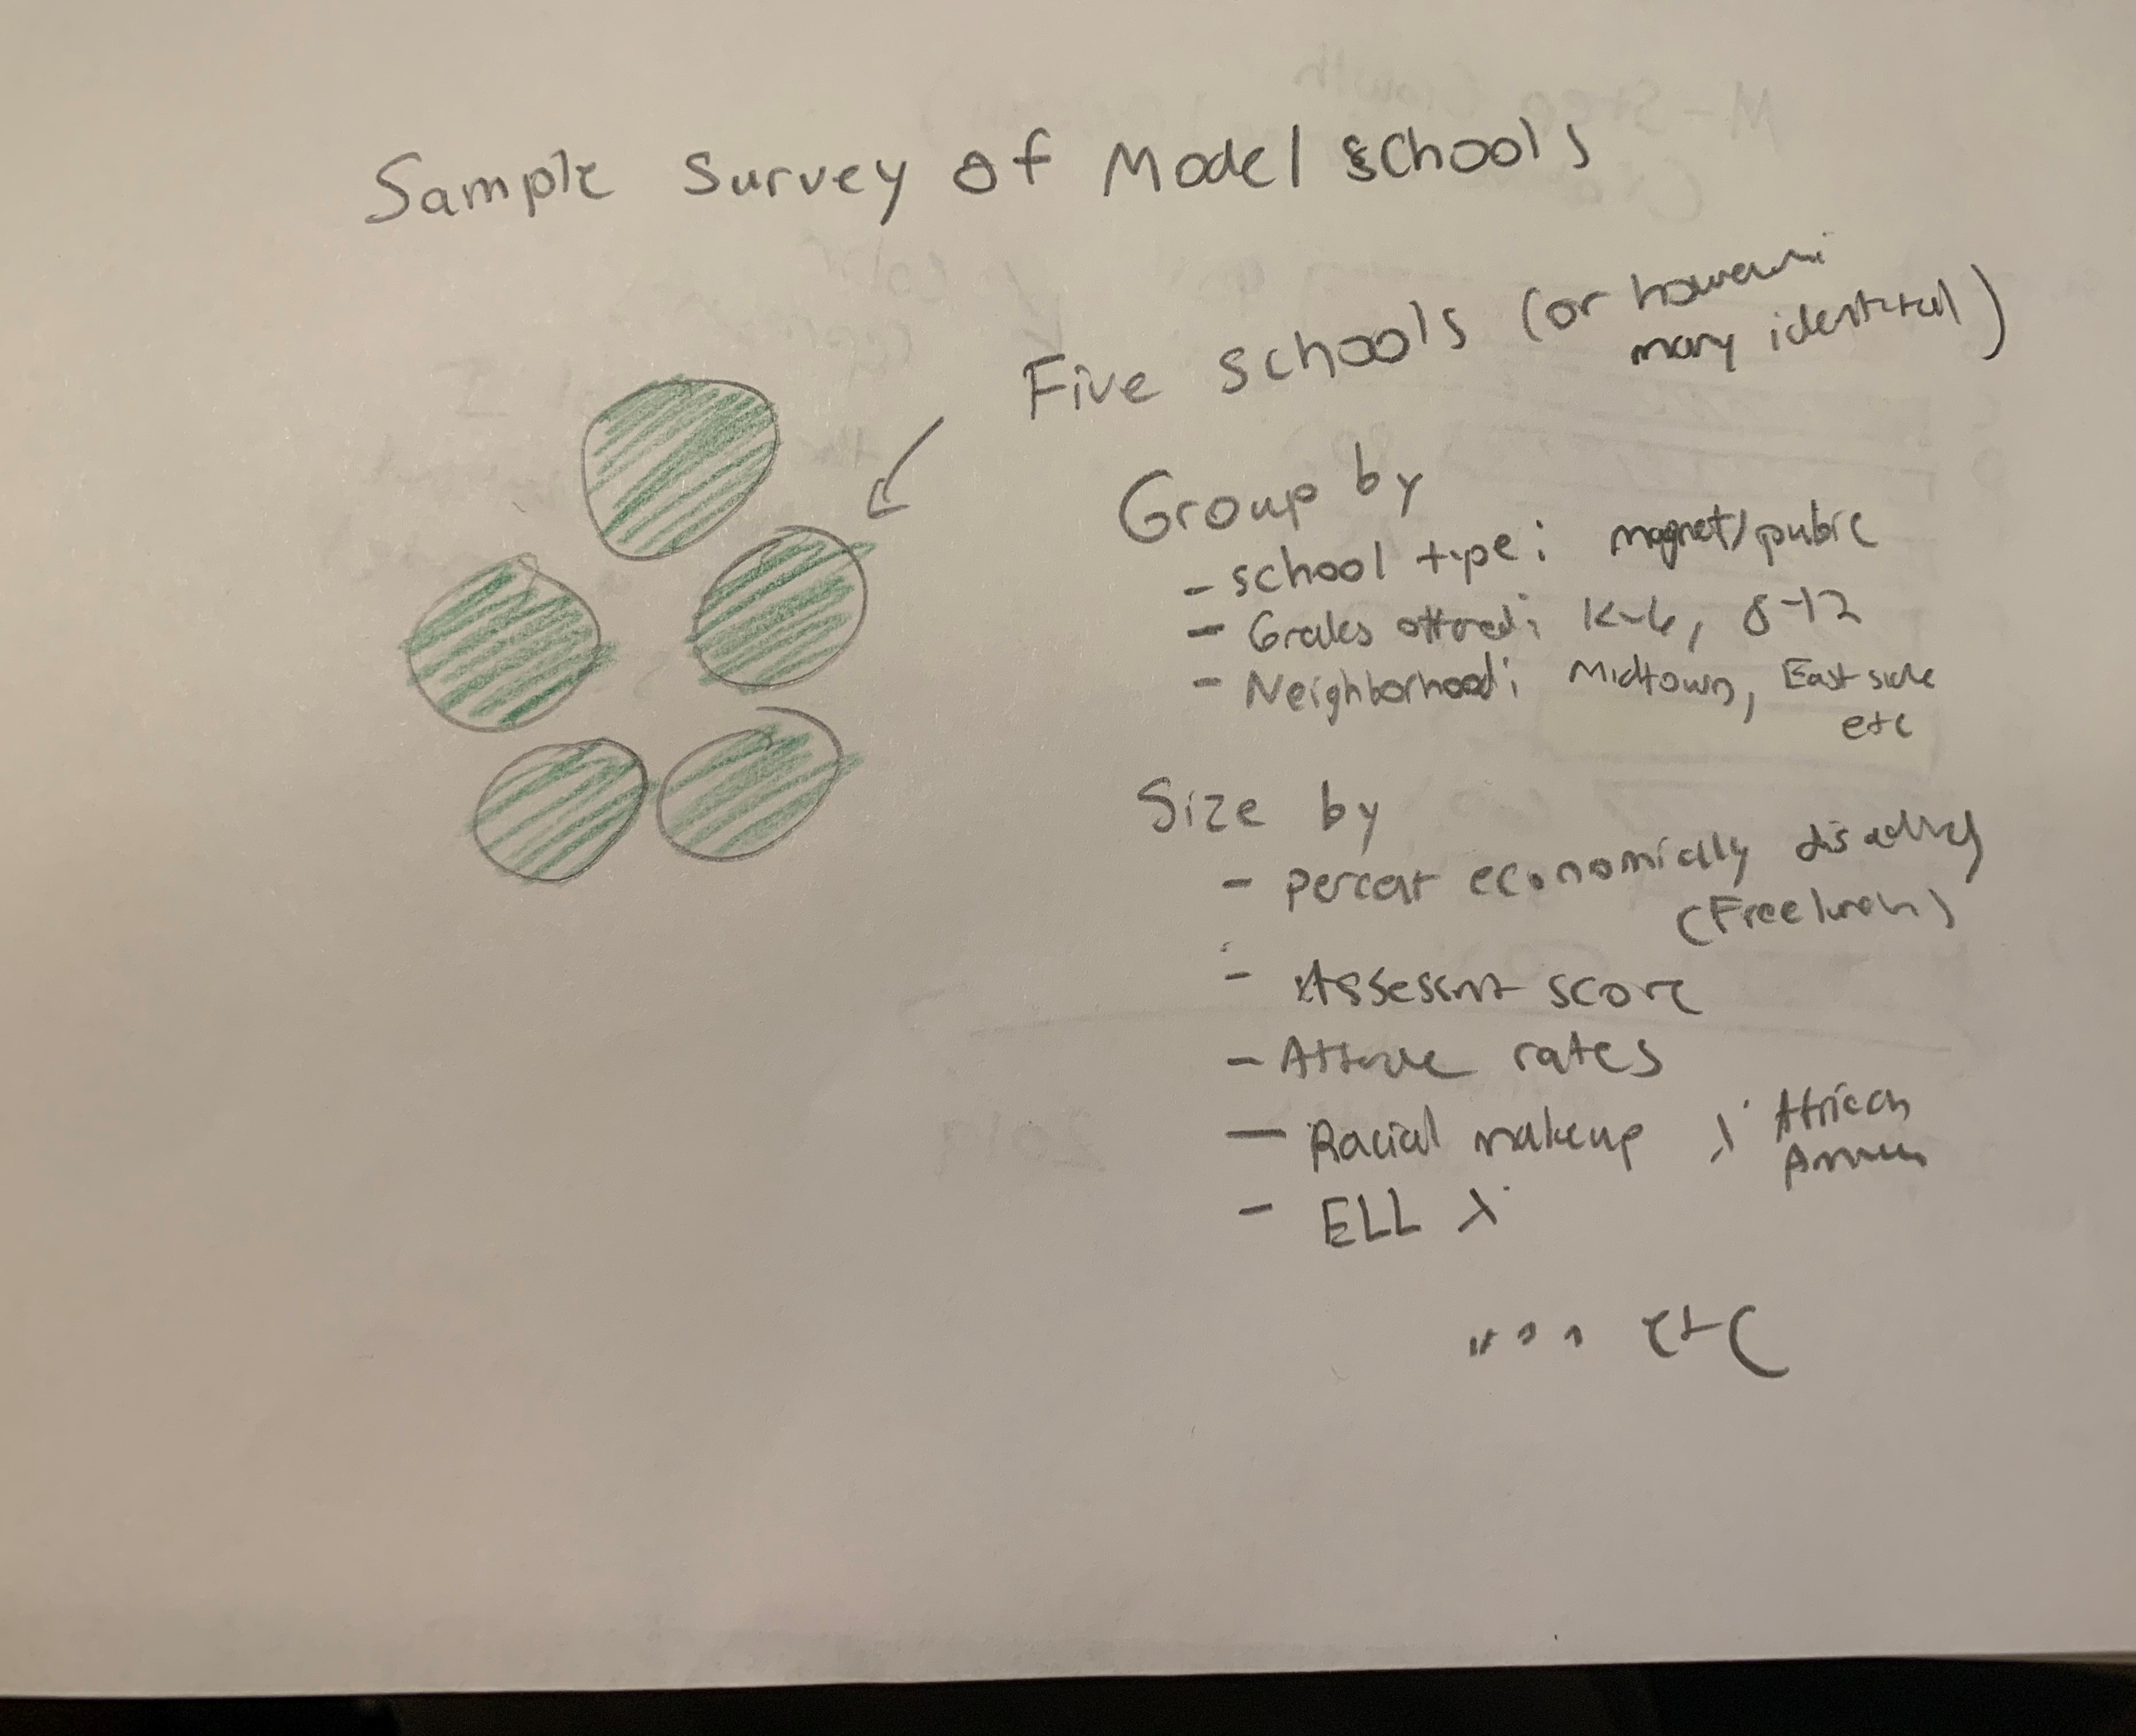 Sample survey of Model schools
Five schools (or however
many identified)
Group by
- school type: magnet/public
- Grades offered: K-6, 8-12
- Neighborhood: Midtown, East side
etc
Size by
- percent economically disadvg
(Free lunch)
- Assessmt score
- rates
- Racial makeup African
- ELL
.... etc
2019
M-Step Growth
color